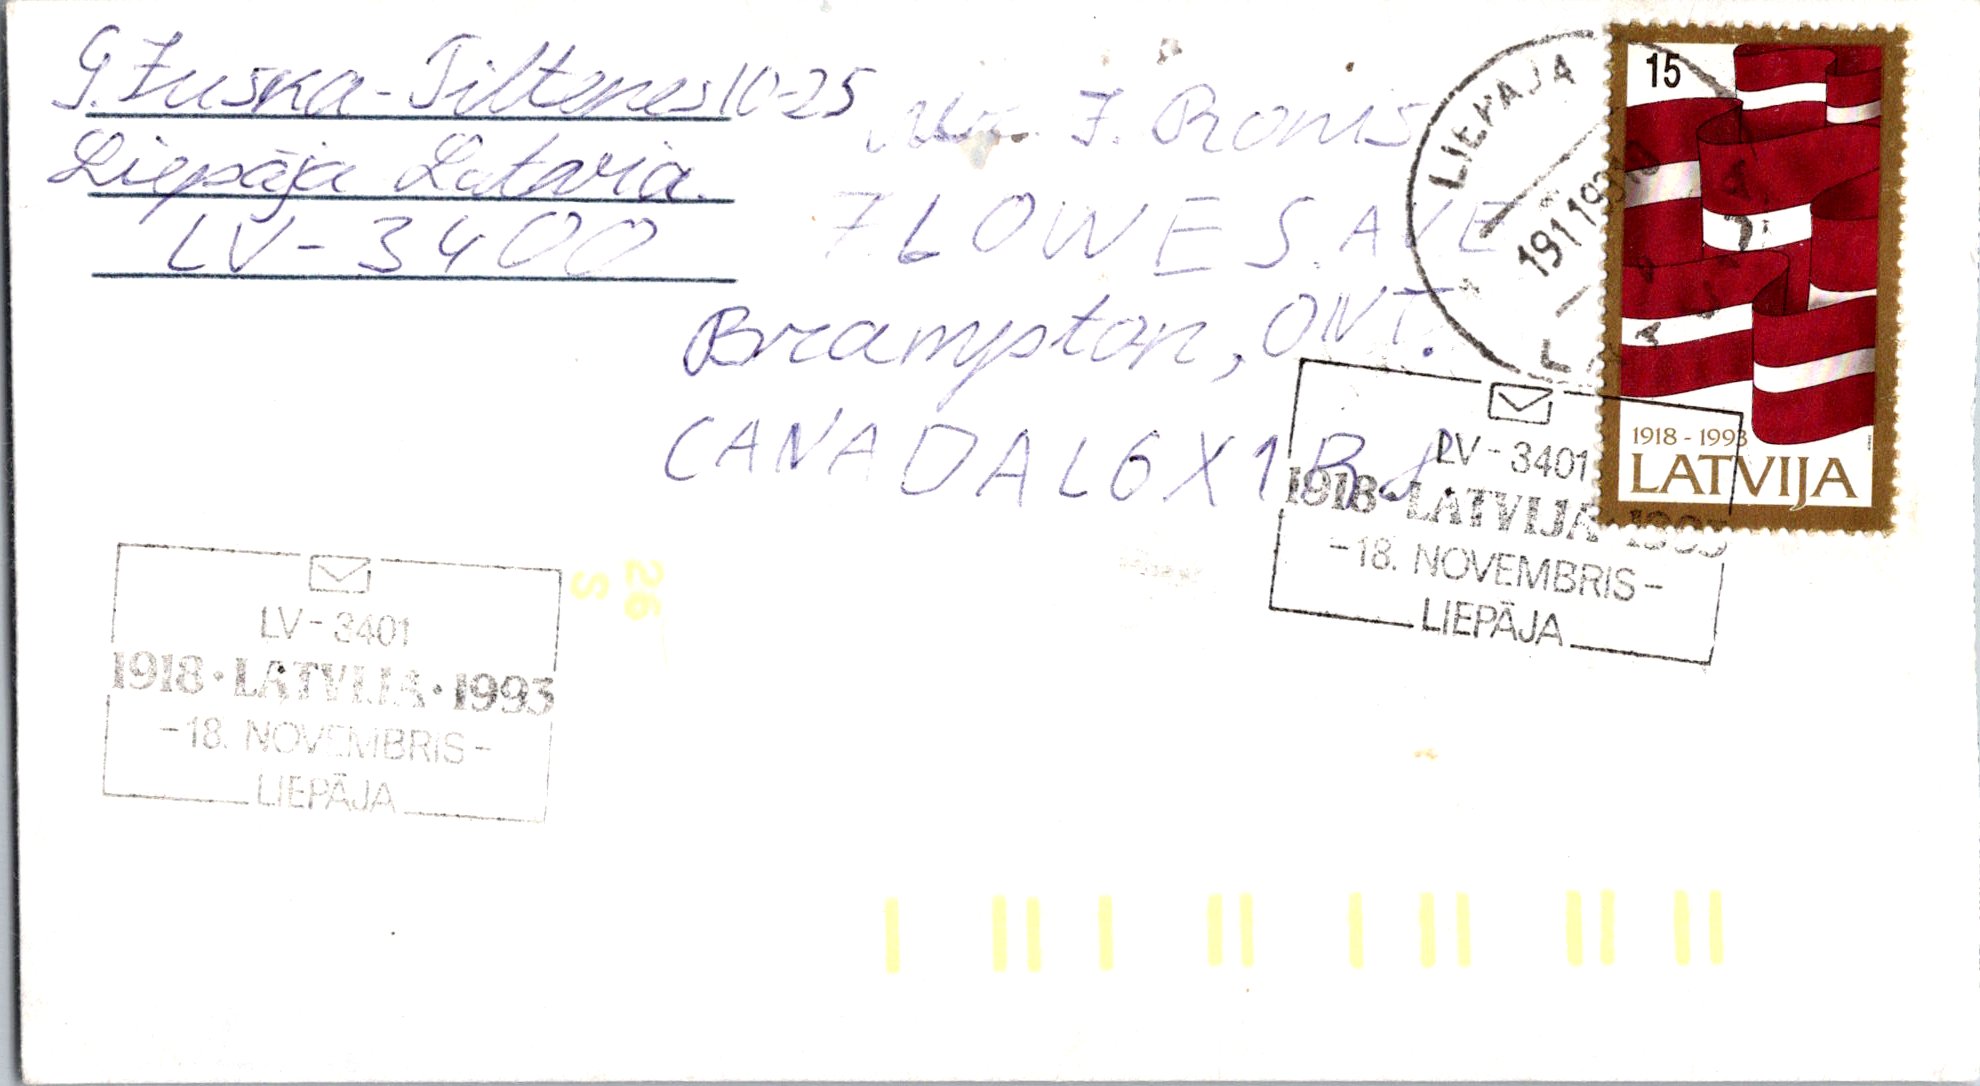 G. Zuska - Tiltenes 10-25
Liepāja Latvia.
LV - 3400
Mr. J. Pronis
7 LOWES AVE
Brampton, ONT.
CANADA L6X 1R
LIEPAJA
19 11 93
15
1918 - 1993
LATVIJA
LV - 3401
1918 · LATVIJA · 1993
-18. NOVEMBRIS-
LIEPĀJA
26
S
LV - 3401
1918 · LATVIJA · 1993
-18. NOVEMBRIS-
LIEPĀJA